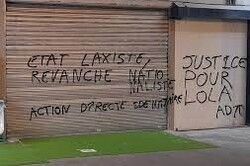 ETAT LAXISTE,
REVANCHE NATIO
NALISTE
ACTION DIRECTE IDENTITAIRE
JUSTICE
POUR
LOLA